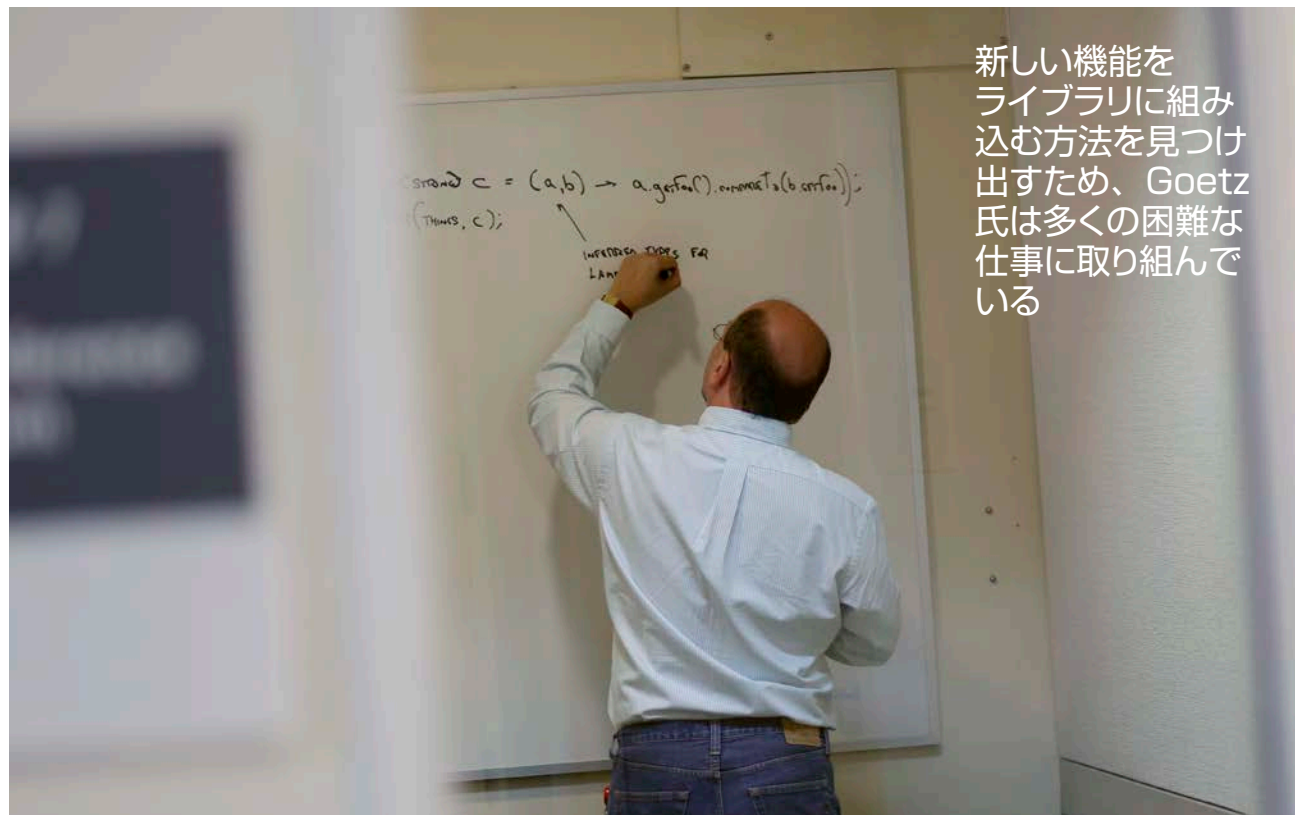 新しい機能を
ライブラリに組み
込む方法を見つけ
出すため、Goetz
氏は多くの困難な
仕事に取り組んで
いる
C = (a,b) → a.getFoo().compareTo(b.getFoo());
(THINGS, C);
INFERRED TYPES FOR